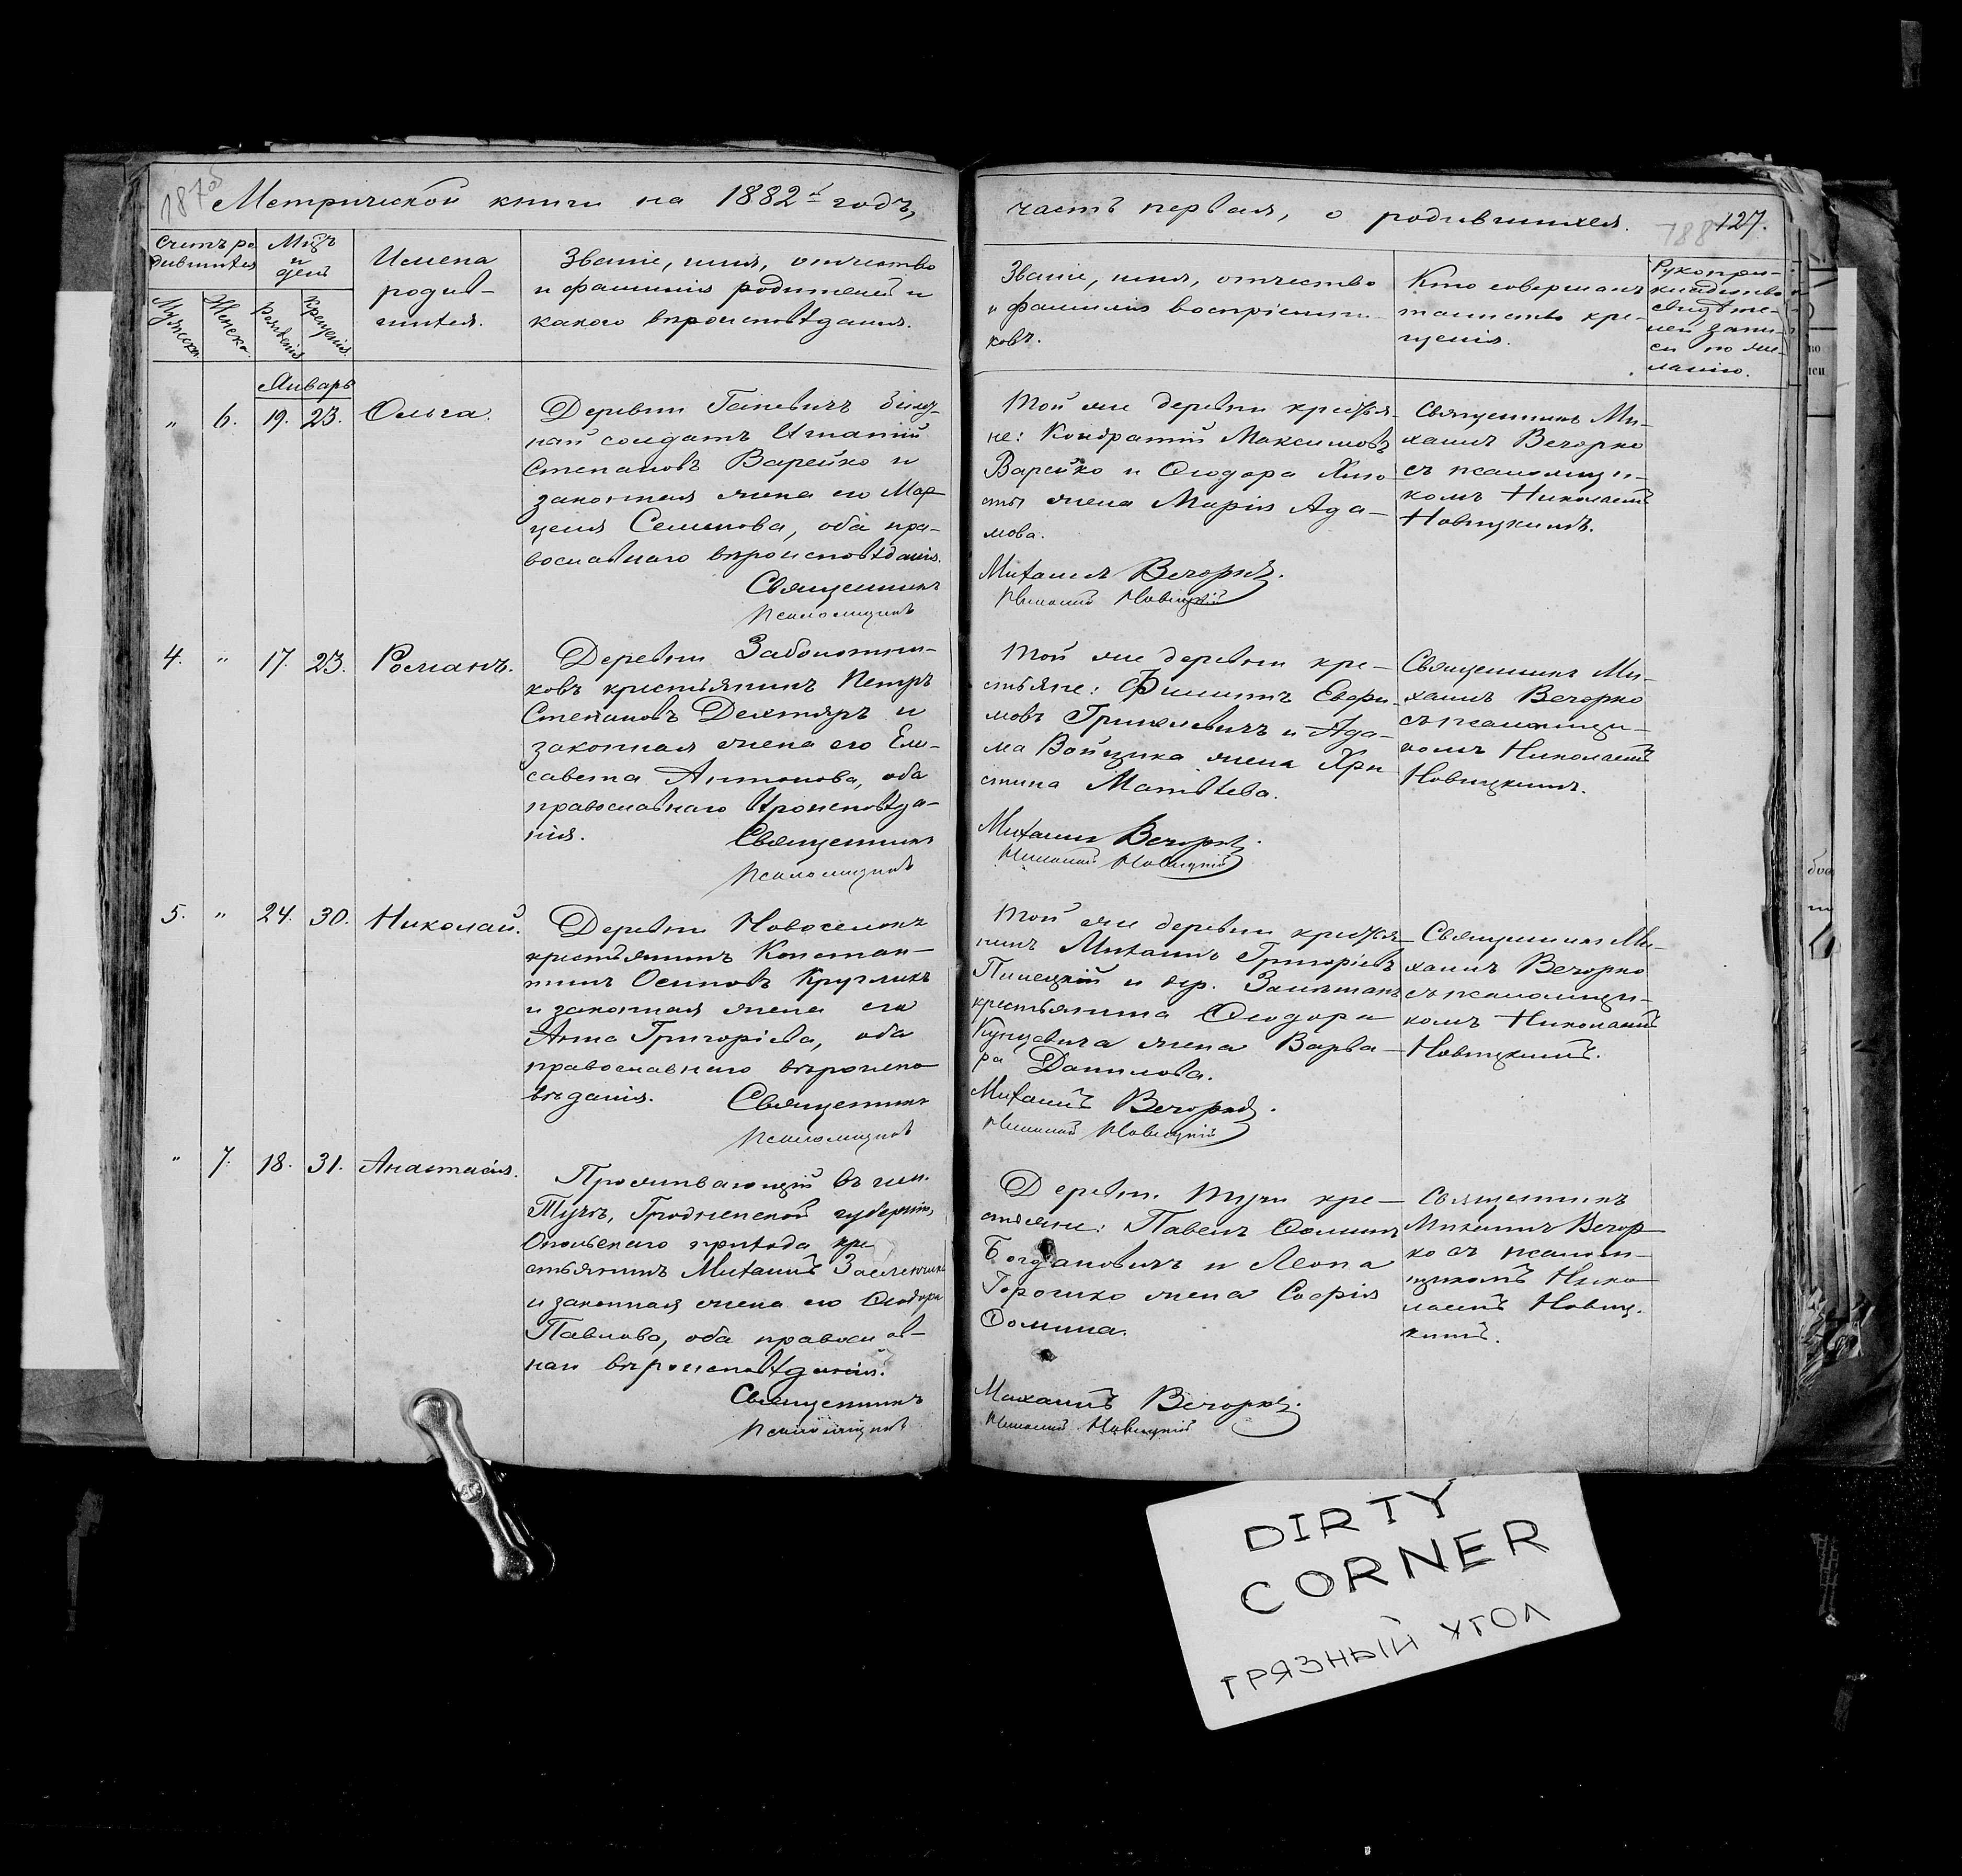 Метрической книги на 1882й годъ,
часть первая, о родившихся.
127.
Счетъ ро
дившихся
Мцъ
и
день
Имена
родив-
шихся.
Званіе, имя, отчество
и фамилія родителей и
какого вѣроисповѣданія.
Мужеска
Женска
Рожденія
Крещенія
Званіе, имя, отчество
и фамилія воспріемни-
ковъ.
Кто совершалъ
таинство кре-
щенія.
Рукопри-
кладство
свидѣте-
лей запи-
си по же-
ланію.
Январь
" 6. 19. 23. Ольга.
Деревни
солдатъ Игнатій
Степановъ Варейко и
законная жена его Мар
Семенова, оба пра-
вославнаго вѣроисповѣданія.
Священникъ
Псаломщикъ
Той же деревни крестья-
не: Кондратій Максимовъ
Варейко и Ѳеодора
жена Марія Ада-
мова.
Михаилъ Вечорко.
Николай Новицкій
Священникъ Ми-
хаилъ Вечорко
съ псаломщи-
комъ Николаемъ
Новицкимъ.
4. " 17. 23. Романъ.
Деревни Заболотни-
ковъ крестьянинъ Петръ
Степановъ Дехтяръ и
законная жена его Ели-
савета Антонова, оба
православнаго вѣроисповѣда-
нія. Священникъ
Псаломщикъ
Той же деревни кре-
стьяне: Филиппъ
Гринкевичъ и Ада-
ма Войцика жена Хри
стина Матвѣева.
Михаилъ Вечорко.
Николай Новицкій
Священникъ Ми-
хаилъ Вечорко
съ псаломщи-
комъ Николаемъ
Новицкимъ.
5. " 24. 30. Николай.
Деревни Новоселокъ
крестьянинъ Констан-
тинъ Осиповъ Кругликъ
и законная жена его
Анна Григоріева, оба
православнаго вѣроиспо-
вѣданія. Священникъ
Псаломщикъ
Той же деревни крестья-
нинъ Михаилъ Григоріевъ
и дер.
крестьянина Ѳеодора
Кунцевича жена Варва-
ра Данилова.
Михаилъ Вечорко.
Николай Новицкій
Священникъ Ми-
хаилъ Вечорко
съ псаломщи-
комъ Николаемъ
Новицкимъ.
" 7. 18. 31. Анастасія.
Проживающій въ имѣн.
Тучѣ, Гродненской губерніи,
Опольскаго прихода кре
стьянинъ Михаилъ
и законная жена его Ѳеодора
Павлова, оба православ-
наго вѣроисповѣданія.
Священникъ
Псаломщикъ
Деревни Тучи кре-
стьяне: Павелъ Ѳоминъ
Богдановичъ и Леона
Горошко жена Софія
Ѳомина.
Михаилъ Вечорко.
Николай Новицкій
Священникъ
Михаилъ Вечор-
ко съ псалом-
щикомъ Нико-
лаемъ Новиц-
кимъ.
DIRTY
CORNER
ГРЯЗНЫЙ УГОЛ